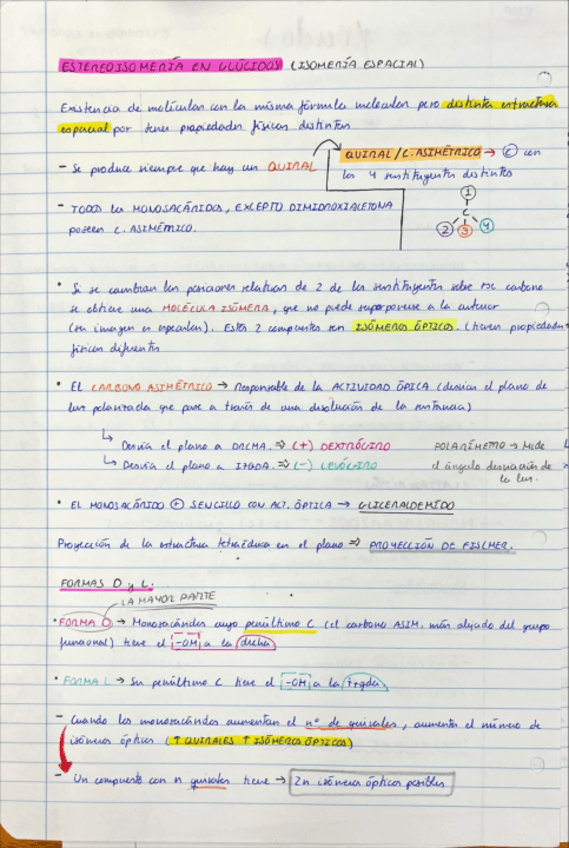 ESTEREOISOMERÍA EN GLÚCIDOS (ISOMERÍA ESPACIAL)
Existencia de moléculas con la misma fórmula molecular pero distinta estructura
espacial por tener propiedades físicas distintas
- Se produce siempre que hay un QUIRAL
QUIRAL / C. ASIMÉTRICO → C con
los 4 sustituyentes distintos
1
C
2 3 4
- TODOS los MONOSACÁRIDOS, EXCEPTO DIHIDROXIACETONA
poseen C. ASIMÉTRICO.
• Si se cambian las posiciones relativas de 2 de los sustituyentes sobre ese carbono
se obtiene una MOLÉCULA ISÓMERA, que no puede superponerse a la anterior
(su imagen es especular). Estos 2 compuestos son ISÓMEROS ÓPTICOS. (tienen propiedades
físicas diferentes
• EL CARBONO ASIMÉTRICO → Responsable de la ACTIVIDAD ÓPICA (desvían el plano de
luz polarizada que pase a través de una disolución de la sustancia)
↳ Desvía el plano a DRCHA. ⇒ (+) DEXTRÓGIRO
↳ Desvía el plano a IZQDA. ⇒ (-) LEVÓGIRO
POLARÍMETRO → Mide
el ángulo desviación de
la luz.
• EL MONOSACÁRIDO ⊕ SENCILLO CON ACT. ÓPTICA → GLICERALDEHÍDO
Proyección de la estructura tetraédrica en el plano ⇒ PROYECCIÓN DE FISCHER.
FORMAS D y L.
LA MAYOR PARTE
• FORMA D → Monosacáridos cuyo penúltimo C (el carbono ASIM. más alejado del grupo
funcional) tiene el -OH a la dcha
• FORMA L → Su penúltimo C tiene el -OH a la izqda
- Cuando los monosacáridos aumentan el nº de quirales, aumenta el número de
isómeros ópticos (↑ QUIRALES ↑ ISÓMEROS ÓPTICOS)
- Un compuesto con n quirales tiene → 2n isómeros ópticos posibles